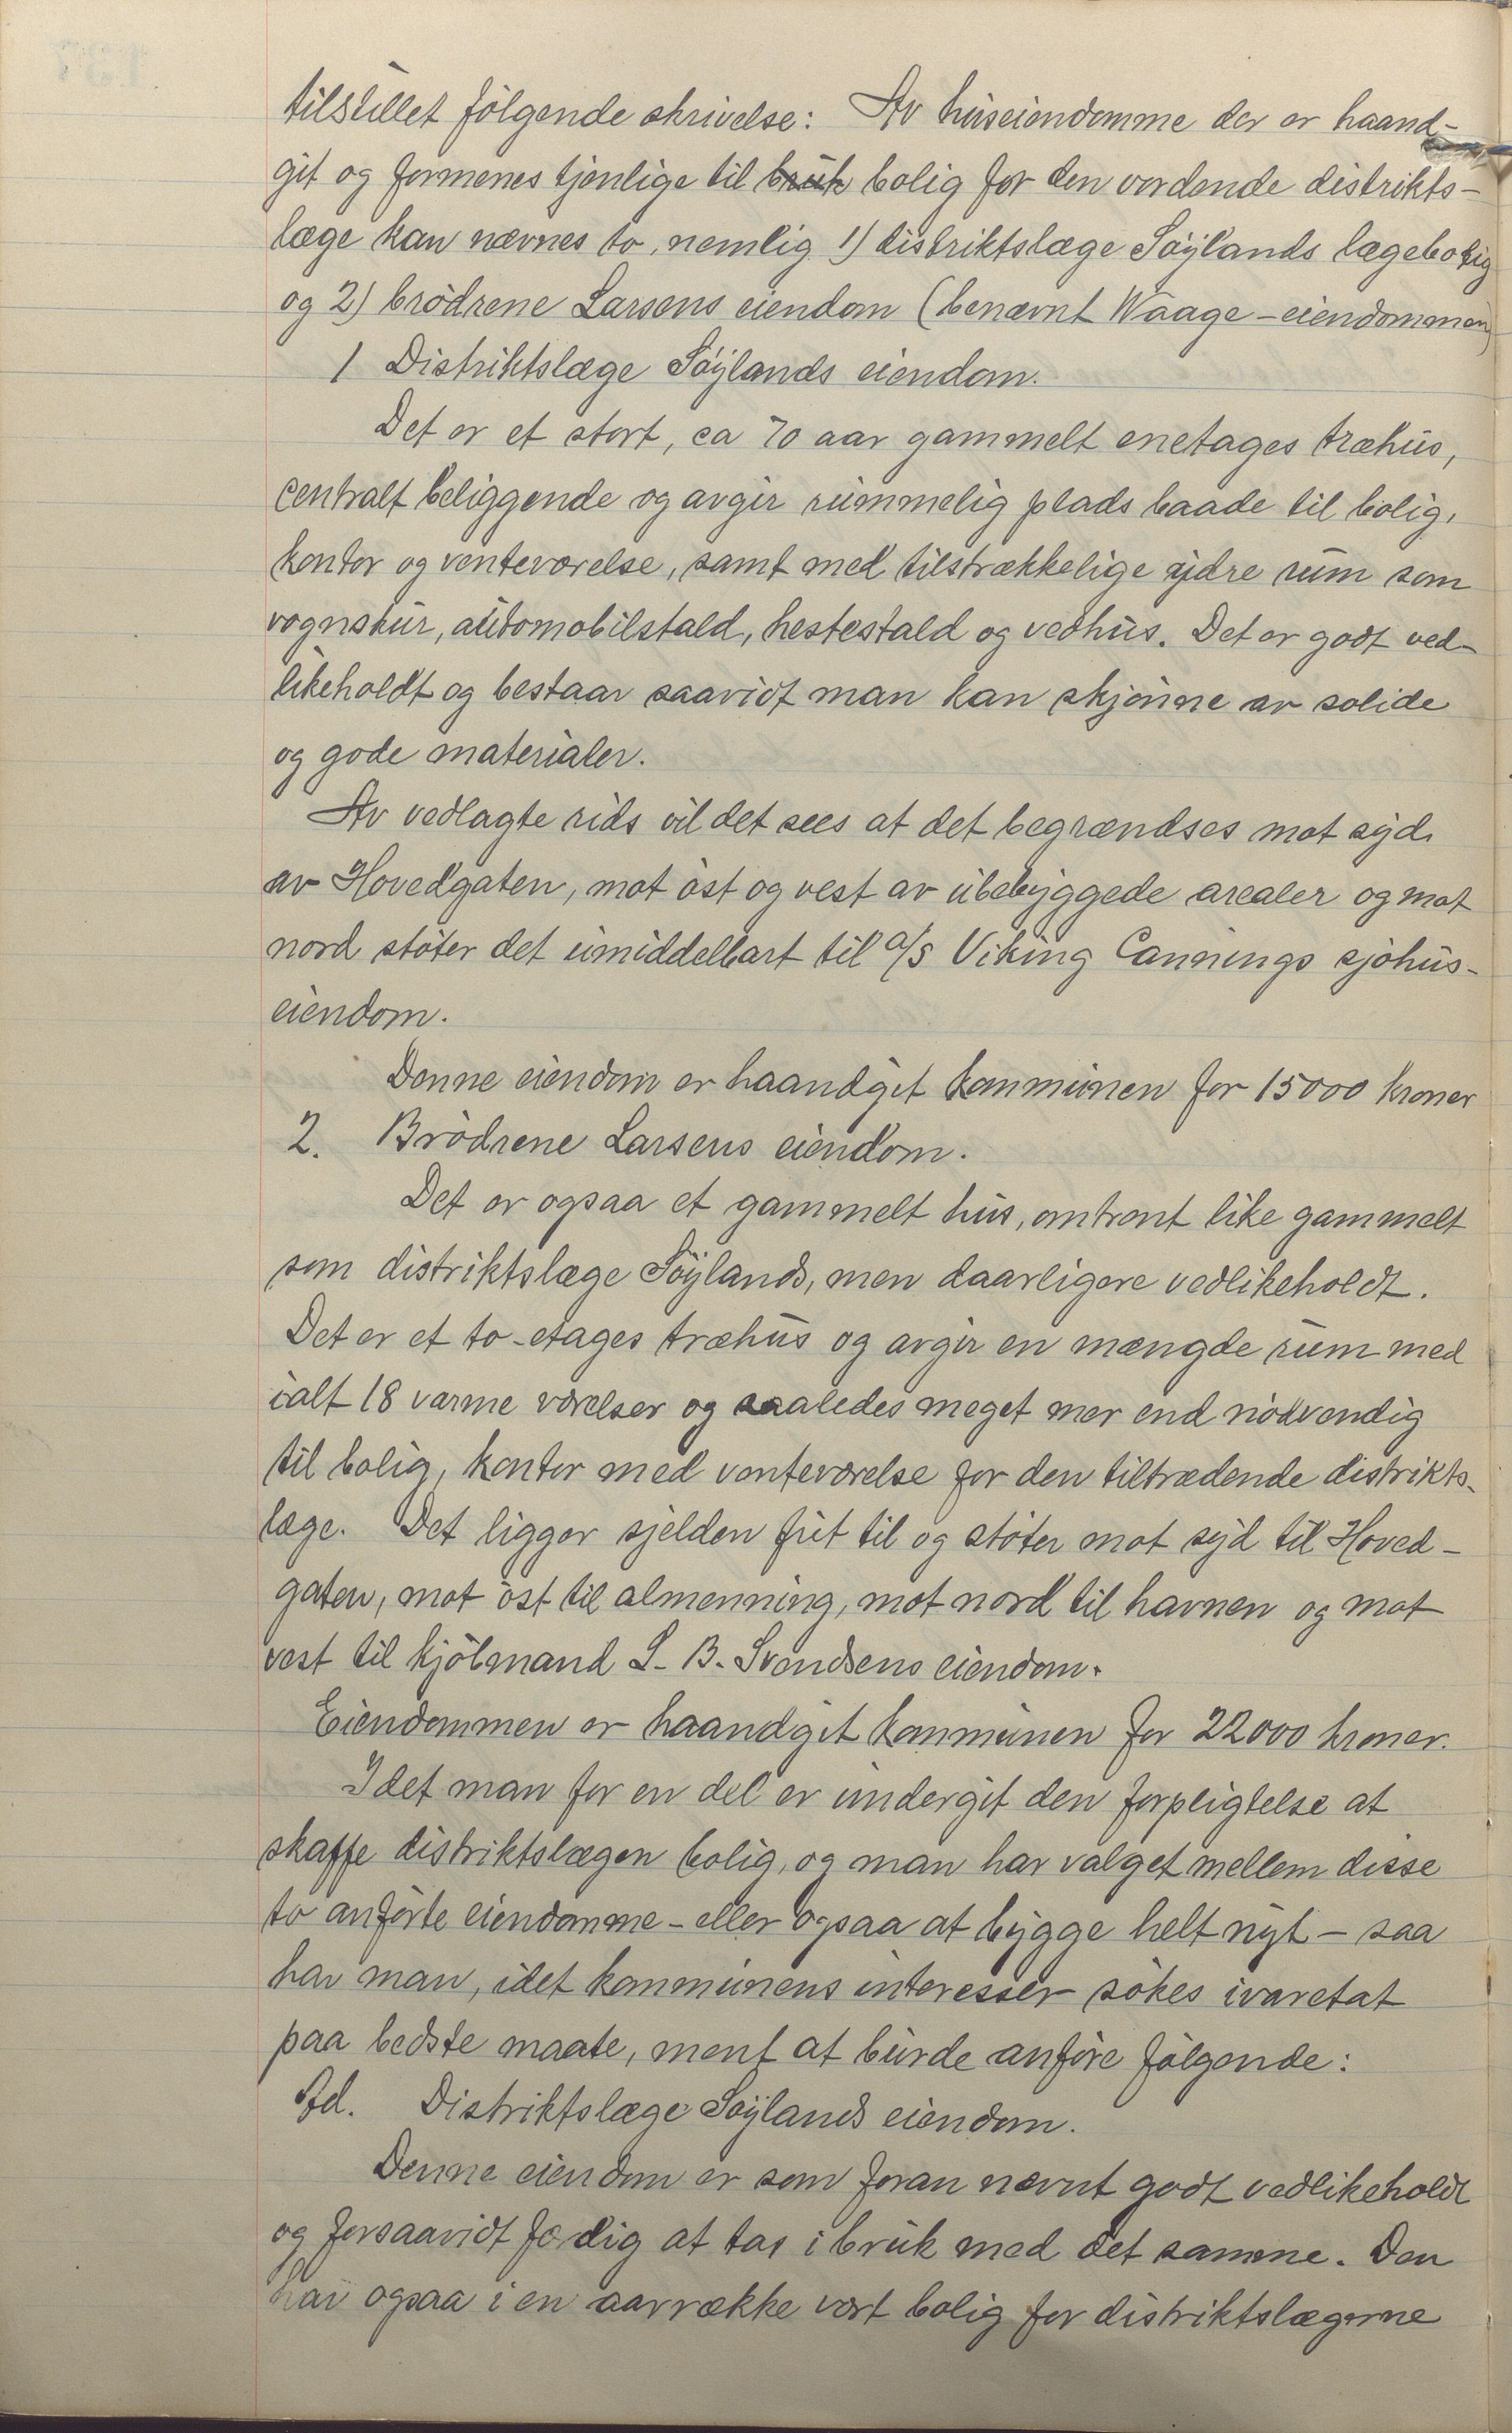 tilstillet følgende skrivelse: Av huseiendomme der er haand-
git og formenes tjenlige til bruk bolig for den vordende distrikts-
læge kan nævnes to, nemlig 1) distriktslæge Söylands lægebolig
og 2) brödrene Larsens eiendom (benævnt Waage-eiendommen)
1 Distriktslæge Söylands eiendom.
Det er et stort, ca 70 aar gammelt enetages træhus,
centralt beliggende og avgir rummelig plads baade til bolig,
kontor og venteværelse, samt med tilstrækkelige ydre rum som
vognskur, automobilstald, hestestald og vedhus. Det er godt ved-
likeholdt og bestaar saavidt man kan skjönne av solide
og gode materialer.
Av vedlagte rids vil det sees at det begrændses mot syd
av Hovedgaten, mot öst og vest av ubebyggede arealer og mot
nord stöter det umiddelbart til a/s Viking Cannings sjöhus-
eiendom.
Denne eiendom er haandgit kommunen for 15000 kroner
2. Brödrene Larsens eiendom.
Det er ogsaa et gammelt hus, omtrent like gammelt
som distriktslæge Söylands, men daarligere vedlikeholdt.
Det er et to-etages træhus og avgir en mængde rum med
ialt 18 varme værelser og saaledes meget mer end nödvendig
til bolig, kontor med venteværelse for den tiltrædende distrikts-
læge. Det ligger sjelden frit til og stöter mot syd til Hoved-
gaten, mot öst til almenning, mot nord til havnen og mot
vest til kjölmand S. B. Svendsens eiendom.
Eiendommen er haandgit kommunen for 22000 kroner.
Idet man for en del er undergit den forpligtelse at
skaffe distriktslægen bolig, og man har valget mellem disse
to anförte eiendomme - eller ogsaa at bygge helt nyt - saa
har man, idet kommunens interesser sökes ivaretat
paa bedste maate, ment at burde anföre fölgende:
Ad. Distriktslæge Söylands eiendom.
Denne eiendom er som foran nævnt godt vedlikeholdt
og forsaavidt færdig at tas i bruk med det samme. Den
har ogsaa i en aarrække vært bolig for distriktslægerne